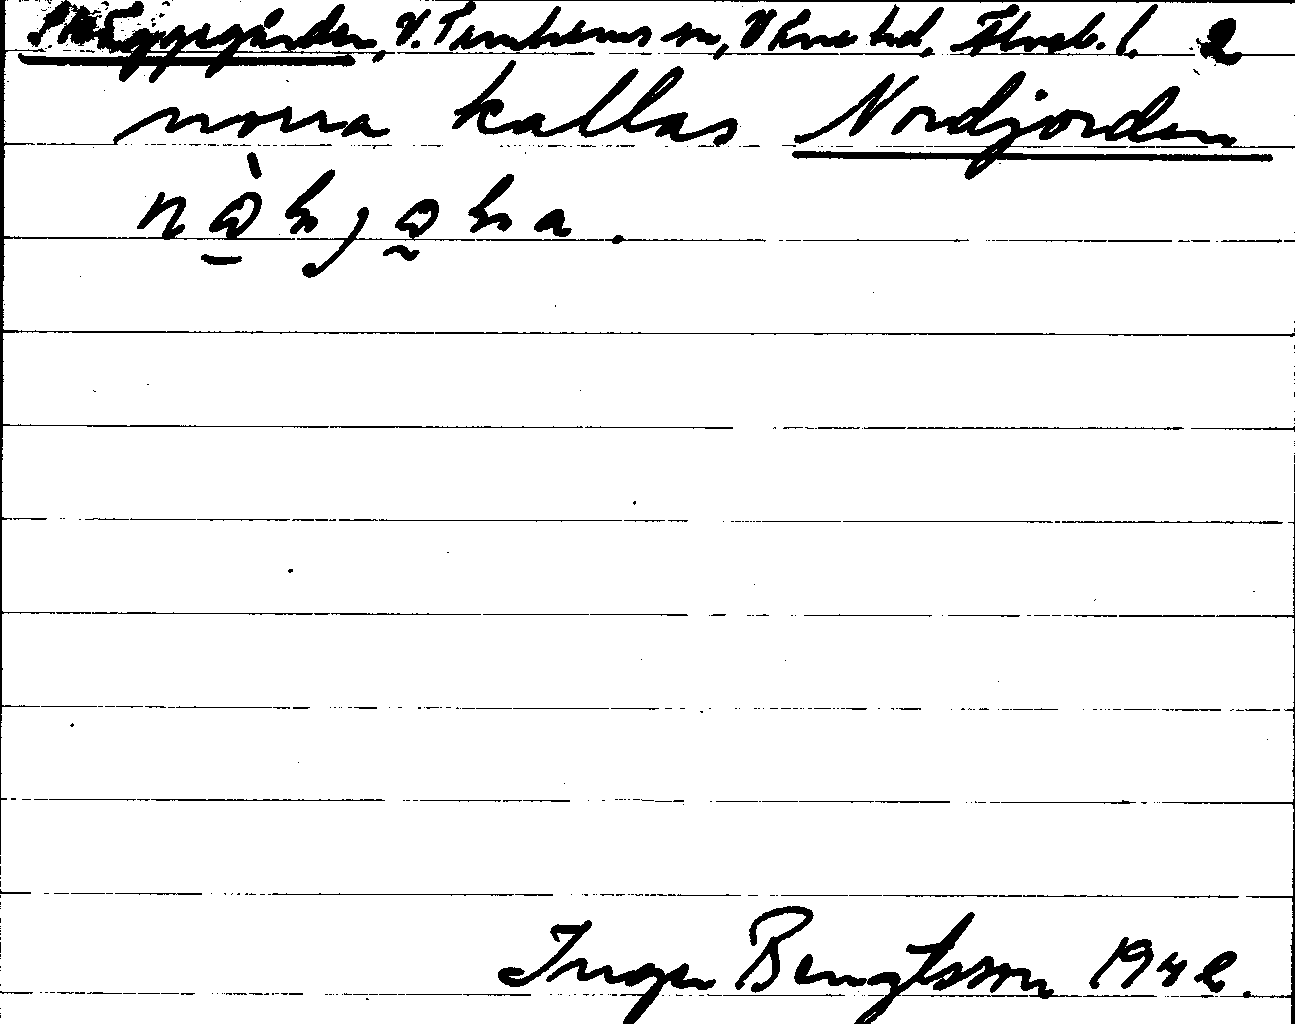 Skäggegården, V. Tunhems sn, Väne hd, Älvsb. l. 2
norra kallas Nordjorden
Inger Bengtsson 1942.